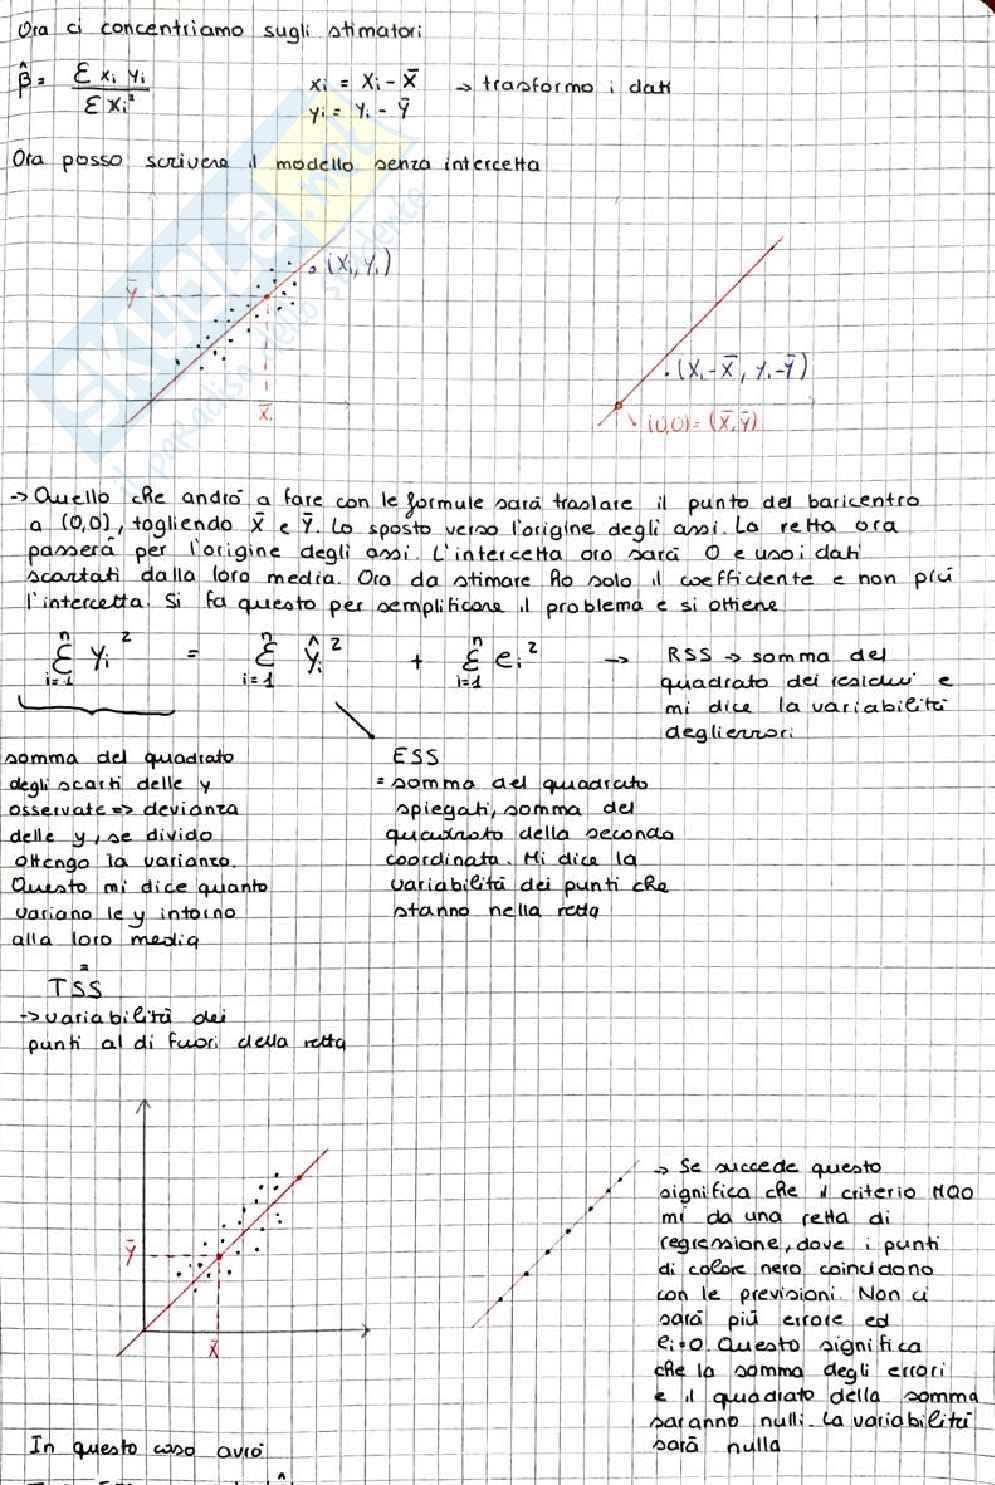 Ora ci concentriamo sugli stimatori
β̂ = Σ xi yi / Σ xi²
xi = Xi - X̄ → trasformo i dati
yi = Yi - Ȳ
Ora posso scrivere il modello senza intercetta
SKUOLA.net
il paradiso dello studente
(Xi, Yi)
Ȳ
X̄
(Xi-X̄, Yi-Ȳ)
(0,0) = (X̄, Ȳ)
→ Quello che andrò a fare con le formule sarà traslare il punto del baricentro
a (0,0), togliendo X̄ e Ȳ. Lo sposto verso l'origine degli assi. La retta ora
passerà per l'origine degli assi. L'intercetta ora sarà 0 e uso i dati
scartati dalla loro media. Ora da stimare ho solo il coefficiente e non più
l'intercetta. Si fa questo per semplificare il problema e si ottiene
Σ i=1 n yi² = Σ i=1 n ŷi² + Σ i=1 n ei² → RSS → somma del
quadrato dei residui e
mi dice la variabilità
degli errori
somma del quadrato
degli scarti delle y
osservate => devianza
delle y, se divido
ottengo la varianza.
Questo mi dice quanto
variano le y intorno
alla loro media
=
TSS
→ variabilità dei
punti al di fuori della retta
ESS
= somma del quadrato
spiegati, somma del
quadrato della seconda
coordinata. Mi dice la
variabilità dei punti che
stanno nella retta
Ȳ
X̄
→ Se succede questo
significa che il criterio MQO
mi da una retta di
regressione, dove i punti
di colore nero coincidono
con le previsioni. Non ci
sarà più errore ed
ei=0. Questo significa
che la somma degli errori
e il quadrato della somma
saranno nulli. La variabilità
sarà nulla
In questo caso avrò